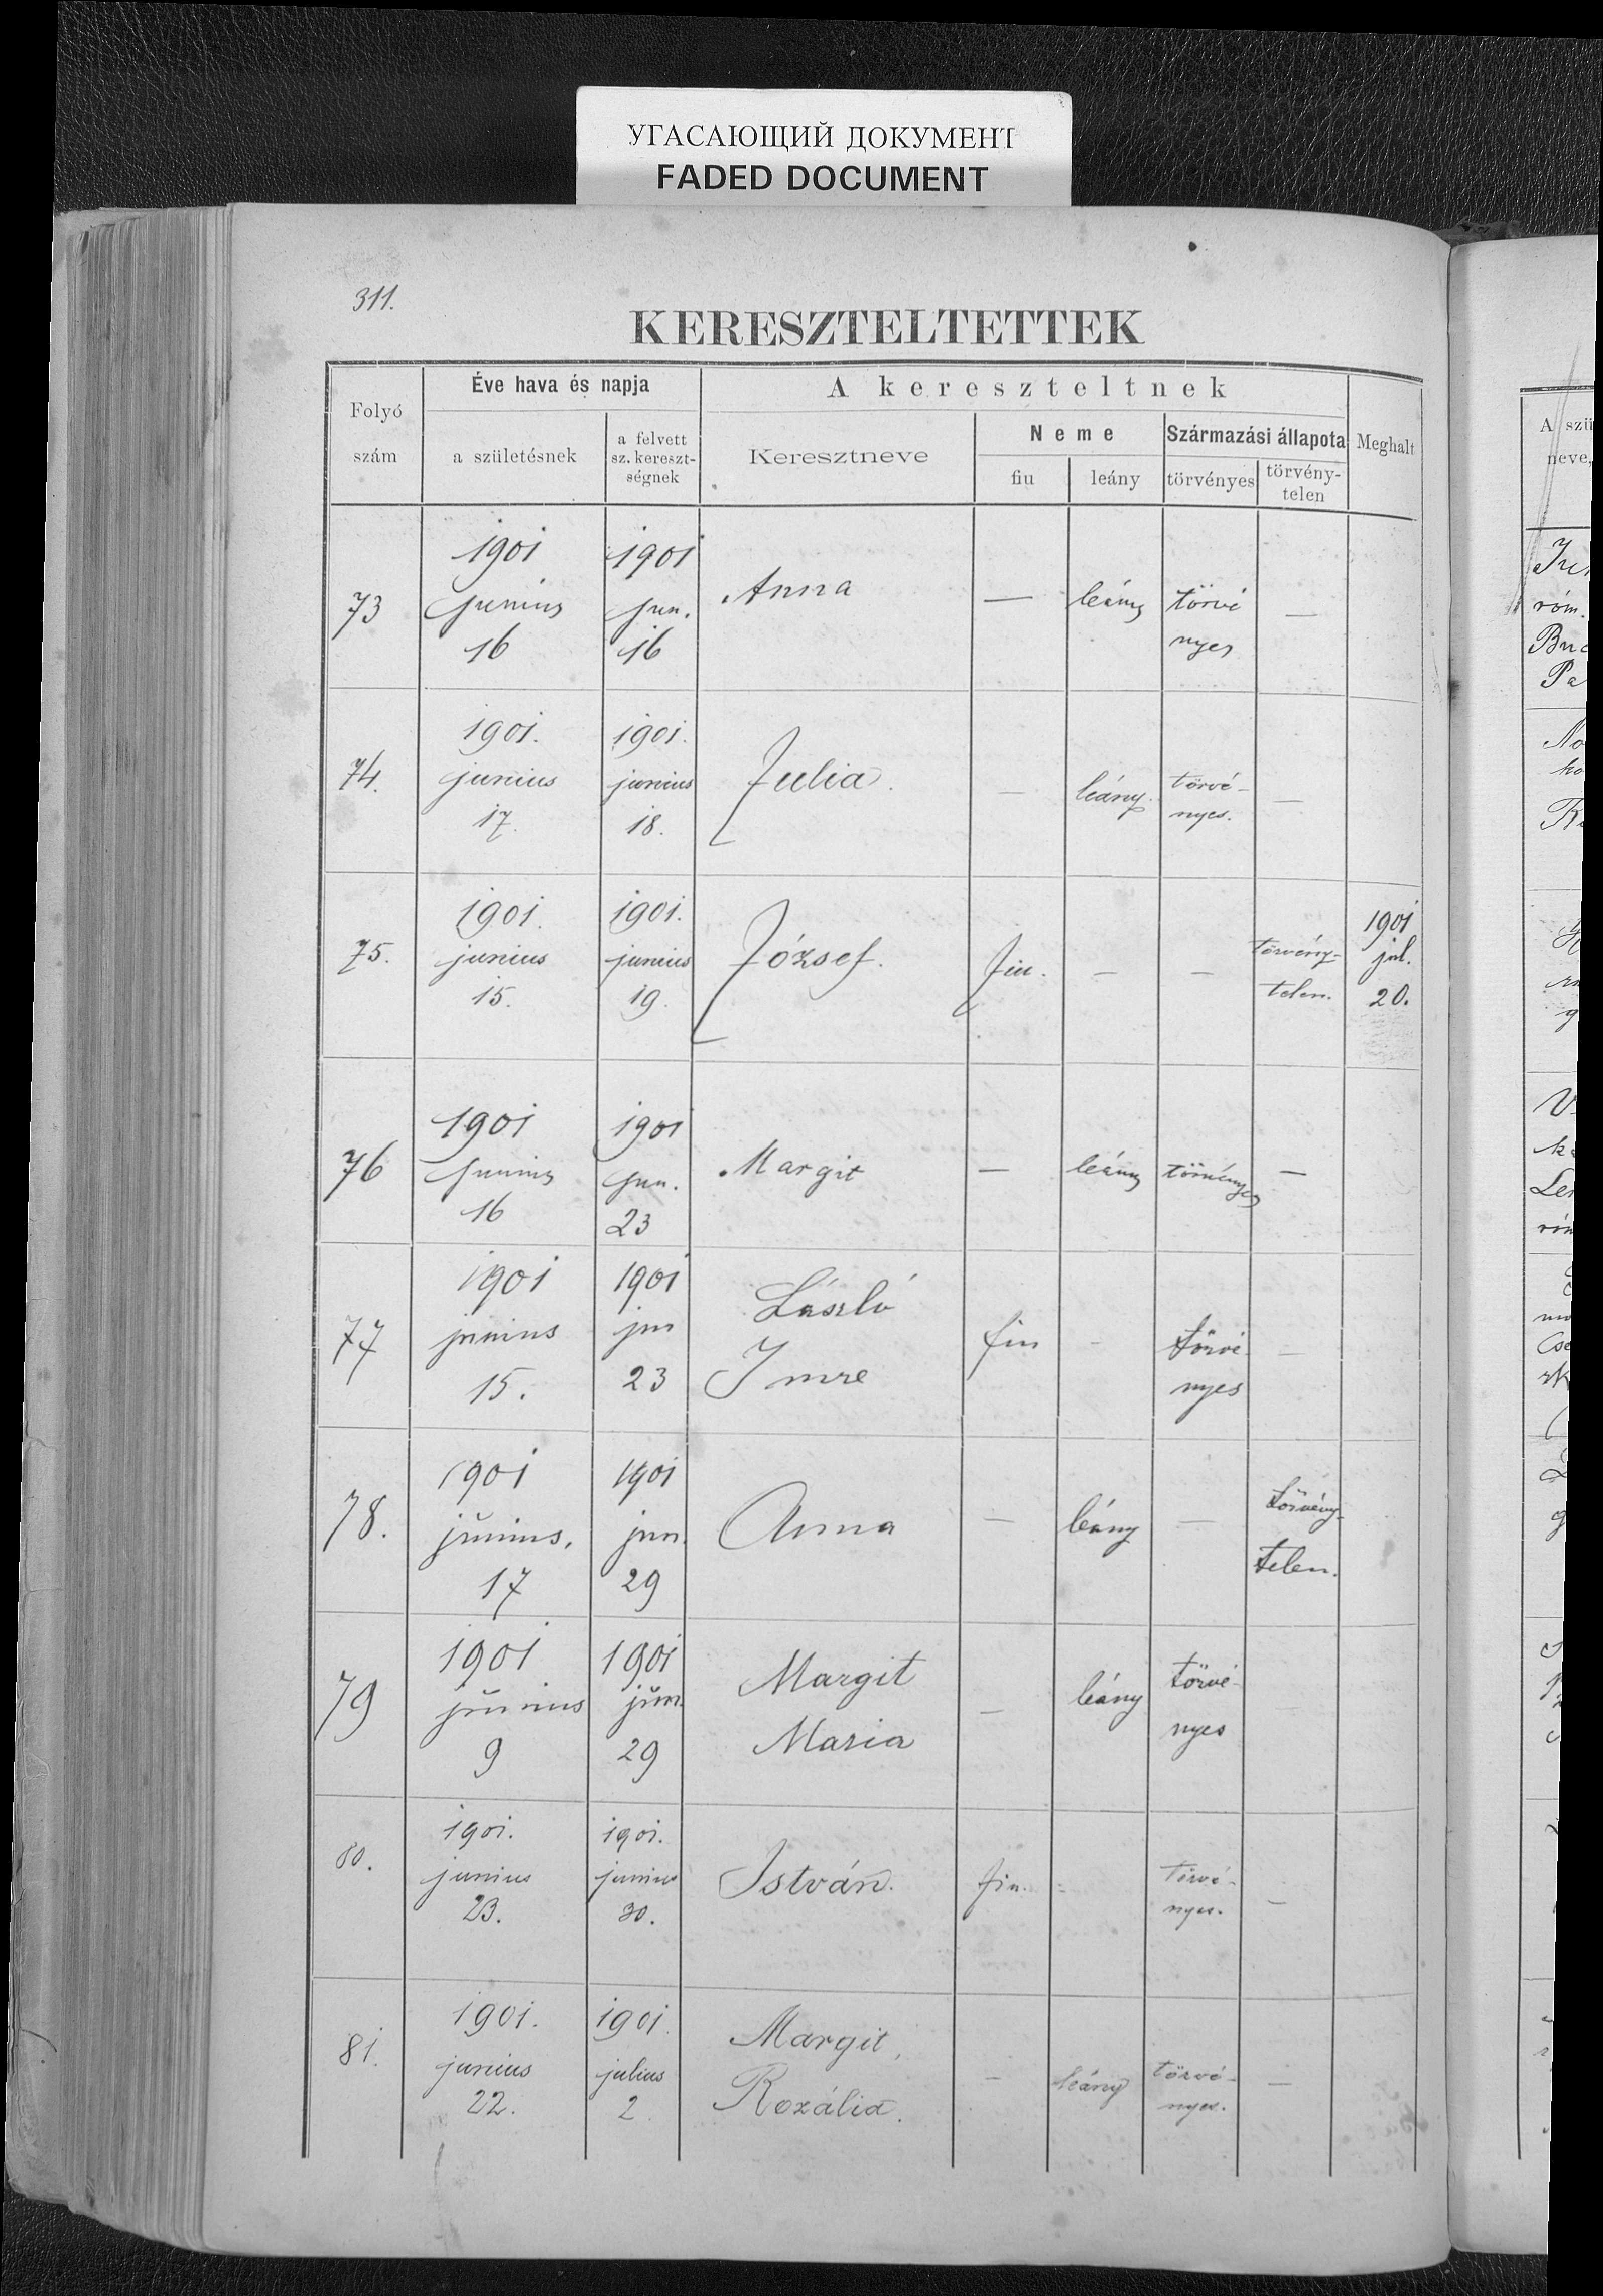 УГАСАЮЩИЙ ДОКУМЕНТ
FADED DOCUMENT
311.
KERESZTELTETTEK
Folyó
szám
Éve hava és napja
a születésnek
a felvett
sz. kereszt-
ségnek
A kereszteltnek
Keresztneve
Neme
fiu
leány
Származási állapota
törvényes
törvény-
telen
Meghalt
73
1901
Junius
16
1901
Jun.
16
Anna
—
leány
törvé
nyes
—
74.
1901.
junius
17.
1901.
junius
18.
Julia.
—
leány.
törvé-
nyes.
—
75.
1901.
junius
15.
1901.
junius
19.
József.
fiu.
—
—
törvény-
telen.
1901
jul.
20.
76
1901
Junius
16
1901
Jun.
23
Margit
—
leány
törvényes
—
77
1901
junius
15.
1901
jun
23
László
Imre
fiu
-
törvé
nyes
—
78.
1901
jŭnius,
17
1901
jun.
29
Anna
—
leány
—
törvény-
telen.
79
1901
jŭnius
9
1901
jŭn.
29
Margit
Maria
—
leány
törvé-
nyes
80.
1901.
junius
23.
1901.
junius
30.
István.
fiu.
-
törvé-
nyes.
—
81.
1901.
junius
22.
1901.
julius
2.
Margit,
Rozália.
—
leány
törvé-
nyes.
—
A szü
neve,
róm.
Pa
No